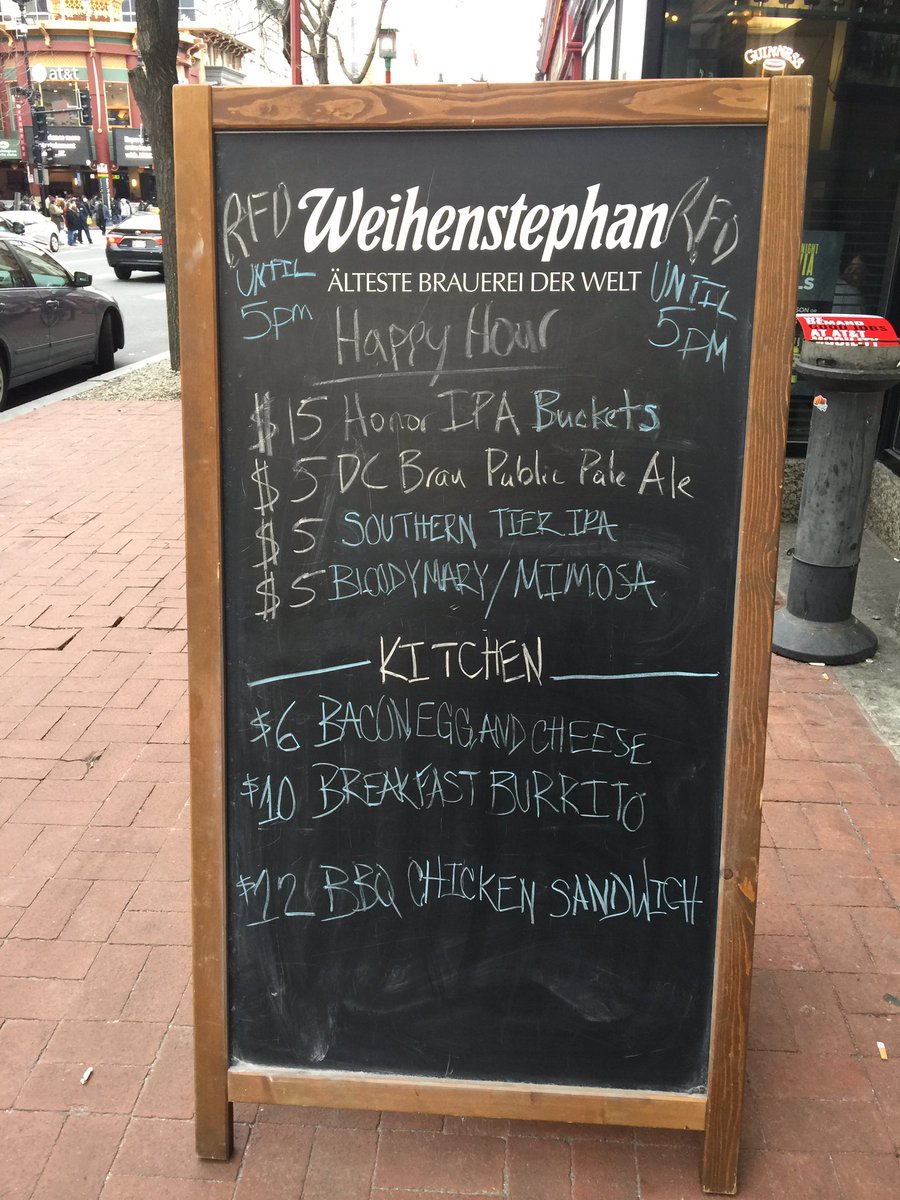 at&t
GUINNESS
RFD Weihenstephan RFD
ÄLTESTE BRAUEREI DER WELT
UNTIL
5pm
UNTIL
5 PM
Happy Hour
$15 Honor IPA Buckets
$5 DC Brau Public Pale Ale
$5 SOUTHERN TIER IPA
$5 BLOODY MARY/MIMOSA
KITCHEN
$6 BACON EGG AND CHEESE
$10 BREAKFAST BURRITO
$12 BBQ CHICKEN SANDWICH
DEMAND
GOOD JOBS
AT AT&T
MOBILITY